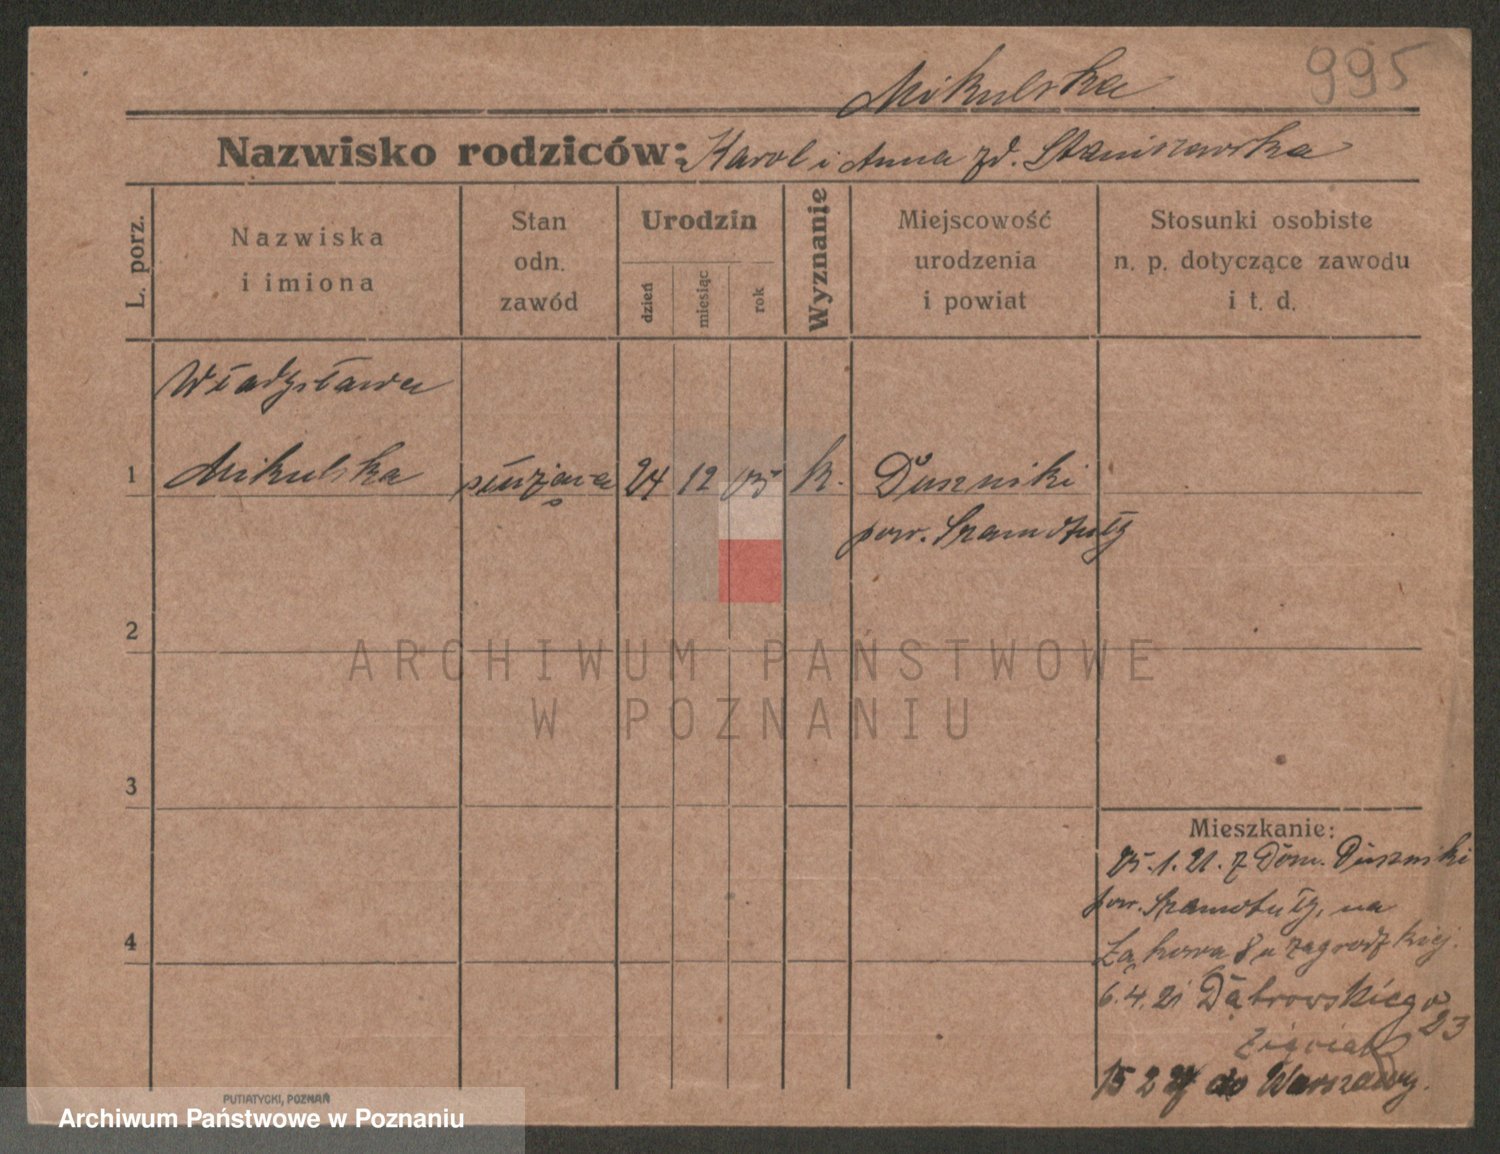 995
Mikulska
Nazwisko rodziców: Karol i Anna zd. Staniszewska
L. porz.
Nazwiska
i imiona
Stan
odn.
zawód
Urodzin
dzień
miesiąc
rok
Wyznanie
Miejscowość
urodzenia
i powiat
Stosunki osobiste
n. p. dotyczące zawodu
i t. d.
Władysława
1 Mikulska służąca 24 12 05 k. Duszniki
pow. Szamotuły
2
3
4
Mieszkanie:
25.1.21. z Dom. Duszniki
pow. Szamotuły, na
Łąkowa 8 u Zagrodzkiej.
6.4.21 Dąbrowskiego
23
15 2 do Warszawy.
ARCHIWUM PAŃSTWOWE
W POZNANIU
PUTIATYCKI, POZNAŃ
Archiwum Państwowe w Poznaniu